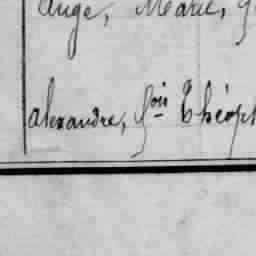 Ange, Marie,
alexandre, fois Théop